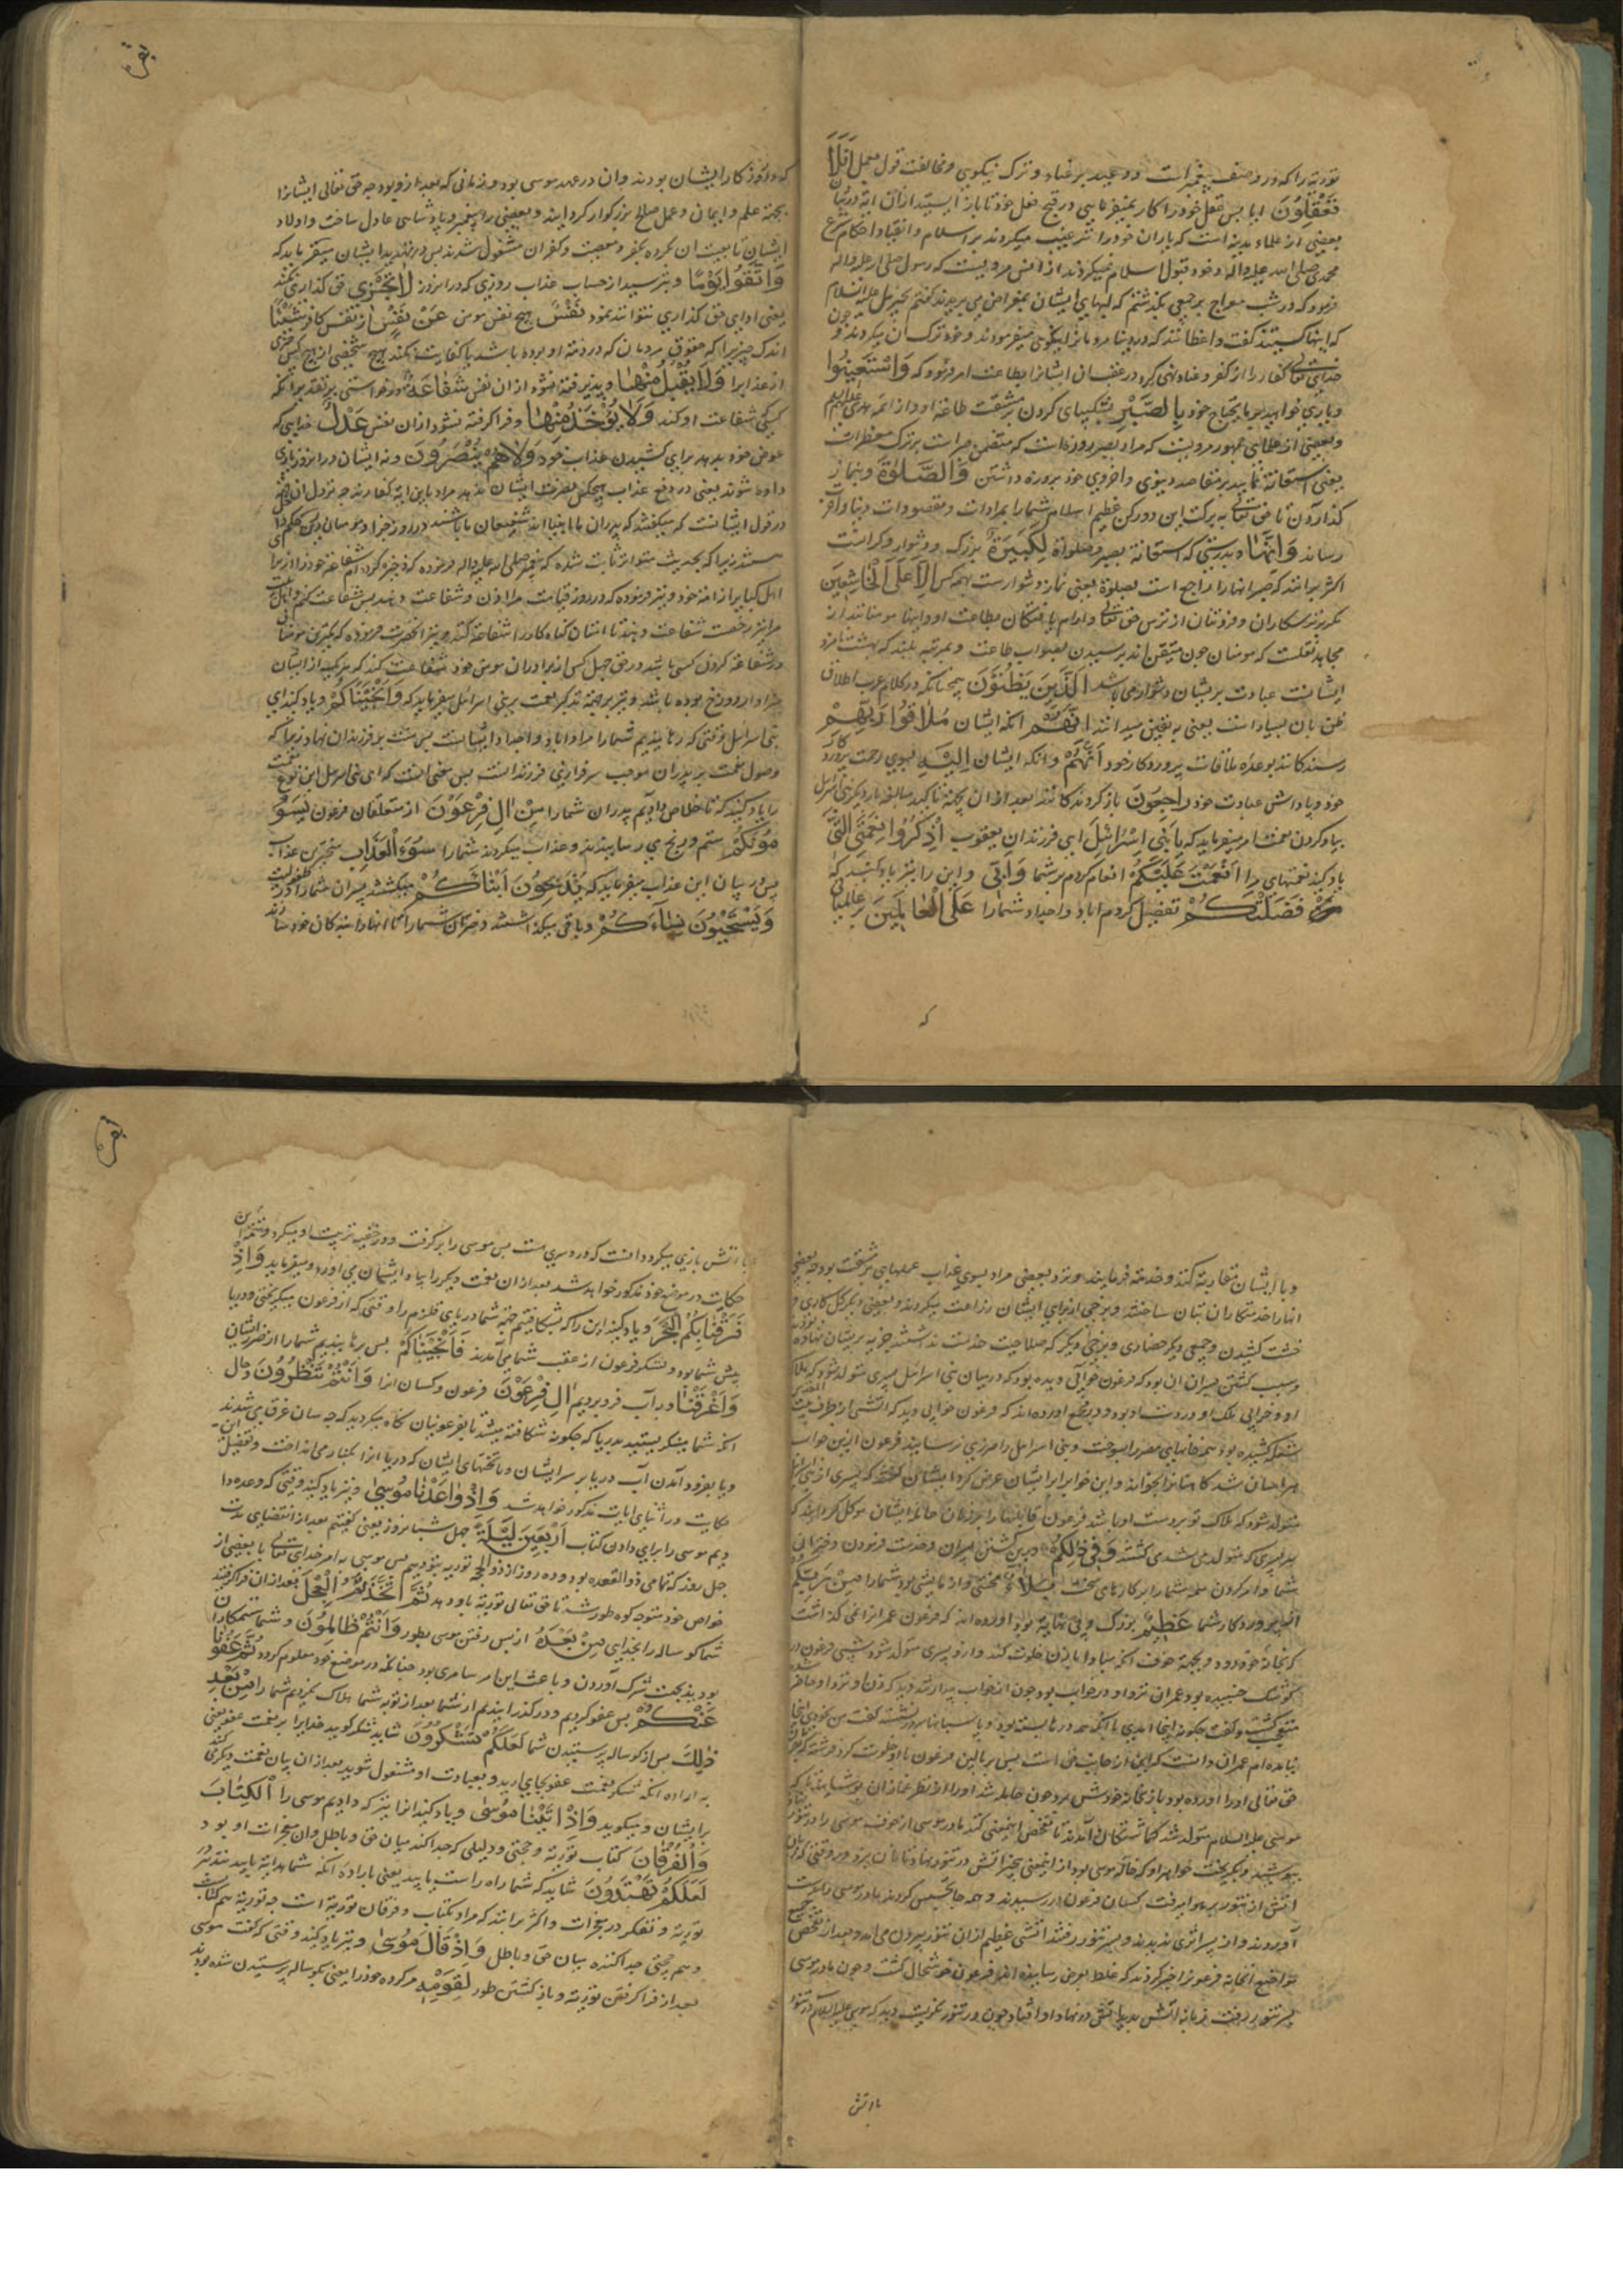 توریة را که در وصف پیغمبر است و وعید بر عناد و ترک نیکویی و مخالفت قول عمل اَفَلَا
تَعْقِلُونَ ایا پس فعل خود را کار نمیفرمایید و قبح فعل خود تا باز ایستید از آن
بعضی از علماء مدینه است که یاران خود را ترغیب میکردند بر اسلام و انقیاد احکام شرع
محمدی صلی الله علیه واله و خود قبول اسلام نمیکردند از انس مرویست که رسول صلی الله علیه واله
فرمود که در شب معراج بر جمعی بگذشتم که لبهای ایشان بمقراض می بریدند گفتم بجبرئیل علیه السلام
که اینها کیستند گفت واعظانند که در دنیا مردمانرا بنیکویی میفرمودند و خود ترک آن میکردند و چون
خدای تعالی کفار را از کفر و عناد نهی کرد در عقب ان ایشانرا بطاعت امر فرمود که وَاسْتَعِینُوا
و یاری خواهید بر ما یحتاج خود بِالصَّبْرِ بشکیبایی کردن بر مشقت طاعة او و از ائمه هدی علیهم السلم
و بعضی از علمای جمهور مرویست که مراد بصبر روزه است که متضمن صبر است بر ترک مفطرات
یعنی استعانة نمایید بر مقاصد دنیوی و اخروی خود بروزه داشتن وَالصَّلٰوةِ و بنماز
گذاردن تا حق تعالی به برکت این دو رکن عظیم اسلام شمارا بمرادات و مقصودات دنیا و آخرت
رساند وَاِنَّهَا و بدرستی که استعانة بصبر و صلوة لَكَبِیرَةٌ بزرگ و دشوار و گرانست
اکثر برانند که ضمیر انها را راجع است بصلوة یعنی نماز دشوارست بهمه کس اِلَّا عَلَی الْخَاشِعِینَ
مگر بر ترسکاران و فروتنان از ترس حق تعالی و ارام یافتگان بطاعت او و اینها مومنانند از
مجاهد نقلست که مومنان چون متیقن اند برسیدن بصواب طاعت و بمرتبه بلند که بهشت نامزد
ایشانست عبادت بریشان دشوار نمی باشد اَلَّذِینَ یَظُنُّونَ همچنانکه در کلام عرب اطلاق
ظن بان بسیار است یعنی به یقین میدانند اَنَّهُمْ انکه ایشان مُلَاقُوا رَبِّهِمْ
رسندگانند بوعده ملاقات پروردکار خود وَاَنَّهُمْ و انکه ایشان اِلَیْهِ بسوی رحمت پروردکار
خود و پاداش عبادت خود رَاجِعُونَ باز گردندکانند بعد از ان بجهة تاکید مبالغه بار دیگر بنی اسرائیل
بیاد کردن نعمت امر میفرماید که یَا بَنِی اِسْرَائِیلَ ای فرزندان یعقوب اُذْكُرُوا نِعْمَتِیَ الَّتِی
یاد کنید نعمتهای مرا اَنْعَمْتُ عَلَیْكُمْ انعام کردم بر شما وَاَنِّی و این را نیز یاد کنید که
من فَضَّلْتُكُمْ تفضیل کردم اباء و اجداد شمارا عَلَی الْعَالَمِینَ بر عالمیانی
که
بقره
که در روزکار ایشان بودند و ان در عهد موسی بود و زمانی که بعد از و بود چه حق تعالی ایشانرا
بجهة علم و ایمان و عمل صالح بزرگوار گردانید و بعضی را پیغمبر و پادشاهی عادل ساخت و اولاد
ایشان تابعیت ان نکرده بکفر و معصیت و کفران مشغول شدند پس در تهدید ایشان میفرماید که
وَاتَّقُوا یَوْمًا و بترسید از حساب عذاب روزی که در ان روز لَا تَجْزِی حق گذاری نکند
یعنی ادای حق گذاری نتوانند نمود نَفْسٌ هیچ نفس مومن عَنْ نَفْسٍ از نفس کافر شَیْئًا
اندک چیزیرا که حقوق مردمان که در ذمه او بوده باشد یا کفایت نکند هیچ شخصی از هیچ کس چیزی
از عذابرا وَلَا یُقْبَلُ مِنْهَا و پذیرفته نشود از ان نفس شَفَاعَةٌ درخواستی بر تقدیر انکه
کسی شفاعت او کند وَلَا یُؤْخَذُ مِنْهَا و فرا گرفته نشود از ان نفس عَدْلٌ فدایی که
عوض خود بدهد برای کشیدن عذاب خود وَلَا هُمْ یُنْصَرُونَ و نه ایشان در ان روز یاری
داده شوند یعنی در دفع عذاب هیچکس نصرت ایشان ندهد مراد باین ایه کفارند چه نزول ان
در قول ایشانست که میگفتند که پدران ما انبیا اند شفیعان ما باشند در روز جزا
اهل کبایر از امة خود و نیز فرموده که در روز قیامت مرا اذن و شفاعت دهند پس شفاعت کنم و اهل بیت
مرا نیز رخصت شفاعت دهند تا ایشان گناه کاررا شفاعة کنند و نیز انحضرت فرموده که کمترین مومنانی
در شفاعة کردن کسی باشد در حق چهل کس از برادران مومن خود شفاعت کند که هر یکی از ایشان
سزاوار دوزخ بوده باشد و نیز بر جهة تذکر نعمت بر بنی اسرائیل میفرماید که وَاِذْ نَجَّیْنَاكُمْ و یاد کنید ای
بنی اسرائیل وقتی که رهانیدیم شمارا مراد اباء و اجداد ایشانست پس منت بر فرزندان نهاد زیرا که
وصول نعمت بر پدران موجب سرفرازی فرزند است پس معنی انست که ای بنی اسرائیل این نوع نعمت
را یاد کنید که تا خلاص دادیم پدران شمارا مِنْ اٰلِ فِرْعَوْنَ از متعلقان فرعون یَسُوْ
مُونَكُمْ ستم و رنج می رسانیدند و عذاب میکردند شمارا سُوءَ الْعَذَابِ سخترین عذاب
پس در بیان این عذاب میفرماید که یُذَبِّحُونَ اَبْنَاءَكُمْ میکشتند پسران شمارا در طفولیت
وَیَسْتَحْیُونَ نِسَاءَكُمْ و باقی میگذاشتند دختران شمارا تا انهارا بندکان خود سازند
و با ایشان مقاربة کنند و خدمة فرمایند و نزد بعضی مراد بسوی عذاب عملهای پر مشقت بود چه بعضی
انهارا خدمتکاران تبان ساختند و برخی از برای ایشان زراعت میکردند و بعضی دیگر گل کاری و
خشت کشیدن و جمعی دیگر حصاری و برخی دیگر که صلاحیت خدمت نداشتند جزیه بریشان نهاده بودند
و سبب کشتن پسران ان بود که فرعون خوابی دیده بود که در میان بنی اسرائیل پسری متولد شود که هلاک
او و خرابی ملک او در دست او بود و در مجمع اورده اند که فرعون خوابی دید که اتشی از طرف بیت المقدس
شعله کشیده بود همه خانهای مصر را بسوخت و بنی اسرائیل را ضرری نرسانید فرعون از این خواب
هراسان شد کاهنانرا بخواند و این خوابرا بریشان عرض کرد ایشان گفتند که پسری از بنی اسرائیل
متولد شود که هلاک تو بردست او باشد فرعون قابلهارا بر زنان حامله ایشان موکل گردانید که
هر پسری که متولد می شدی کشتند وَفِی ذٰلِكُمْ و درین کشتن پسران و خدمت فرمودن دختران
شما و امر کردن همه شمارا بر کارهای سخت بَلَاءٌ محنتی و ازمایشی بود شمارا مِنْ رَبِّكُمْ
از پروردکار شما عَظِیمٌ بزرگ و بی نهایة بود اورده اند که فرعون عمرانرا نمی گذاشت
که بخانهٔ خود رود و بجهة خوف انکه مبادا با زن خلوت کند و ازو پسری متولد شود شبی فرعون در
کوشک خسبیده بود عمران نزد او در خواب بود چون از خواب بیدار شد دید که زن او نزد او حاضر
متعجب گشت و گفت چگونه اینجا امدی با انکه همه درها بسته بود و پاسبانها بر در نشسته گفت من بخودی اینجا
نیامده ام عمران دانست که این از جانب حق است پس بر بالین فرعون با او خلوت کرد
حق تعالی اورا اورده بود باز بخانهٔ خودش برد چون حامله شد اورا از نظر غمازان پوشانیدند تا که
موسی علیه السلام متولد شد گماشتگان آمدند تا تفحص اینمعنی کنند مادر موسی از خوف موسی را در تنور
پوشید و بگریخت خواهر او که خاله موسی بود از اینمعنی بیخبر اتش در تنور نهاد تا نان پزد و در وقتی که زبانه
اتش از تنور بر هوا میرفت کسان فرعون در رسیدند و همه جا تجسس کردند مادر موسی را بدست
آوردند و از پسر اثری ندیدند و بسر تنور رفتند اتشی عظیم از ان تنور بیرون می امد و بعد از تفحص جمیع
مواضع انخانه فرعونرا خبر کردند که غلط بعرض رسانیده اند فرعون خوشحال گشت و چون مادر موسی
بسر تنور رفت زبانه اتش دید
با اتش
بقره
با اتش بازی میکرد دانست که درو سری هست پس موسی را بر گرفت و در خفیه تربیت او میکرد و تتمهٔ این
حکایت در موضع خود مذکور خواهد شد بعد از ان نعمت دیگر را بیاد ایشان می آورد و میفرماید وَاِذْ
فَرَقْنَا بِكُمُ الْبَحْرَ و یاد کنید این را که بشکافتیم جهة شما دریای قلزم را وقتی که از فرعون میگریختی و دریا
پیش شما بود و لشکر فرعون از عقب شما می آمدند فَاَنْجَیْنَاكُمْ پس برهانیدیم شمارا از ضرر ایشان
وَاَغْرَقْنَا و در آب فرو بردیم اٰلَ فِرْعَوْنَ فرعون و کسان انرا وَاَنْتُمْ تَنْظُرُونَ و حال
انکه شما مینگریستید بدریا که چگونه شکافته میشد یا بفرعونیان نگاه میکردید که چه سان غرق می شدند
و یا بفرود آمدن آب دریا بر سر ایشان و یا تختهای ایشان که دریا انرا بکنار می انداخت و تفصیل این
حکایت در اثنای ایات مذکور خواهد شد وَاِذْ وٰاعَدْنَا مُوسٰی و نیز یاد کنید وقتی که وعده دا
دیم موسی را برای دادن کتاب اَرْبَعِینَ لَیْلَةً چهل شبانروز یعنی گفتیم بعد از انقضای مدت
چهل روز که تمامی ذوالقعده بود و ده روز از ذوالحجه توریة بتو دهیم پس موسی به امر خدای تعالی با بعضی از
خواص خود متوجه کوه طور شد تا حق تعالی توریة باو دهد ثُمَّ اتَّخَذْتُمُ الْعِجْلَ بعد از ان فرا گرفتید
شما گوساله را بخدایی مِنْ بَعْدِهِ از پس رفتن موسی بطور وَاَنْتُمْ ظَالِمُونَ و شما ستمکاران
بودید بجهت شرک آوردن و باعث این امر سامری بود چنانکه در موضع خود معلوم گردد ثُمَّ عَفَوْنَا
عَنْكُمْ پس عفو کردیم و در گذرانیدیم از شما بعد از توبه شما هلاک نکردیم شمارا مِنْ بَعْدِ
ذٰلِكَ پس از گوساله پرستیدن شما لَعَلَّكُمْ تَشْكُرُونَ شاید شکر گویید خدایرا بر نعمت عفو یعنی
به اراده انکه شکر نعمت عفو بجای ارید و بعبادت او مشغول شوید بعد از ان بیان نعمت دیگری کند
بر ایشان و میگوید وَاِذْ اٰتَیْنَا مُوسٰی و یاد کنید انرا نیز که دادیم موسی را الْكِتَابَ
وَالْفُرْقَانَ کتاب توریة و حجتی و دلیلی که جدا کند میان حق و باطل و ان معجزات او بود
لَعَلَّكُمْ تَهْتَدُونَ شاید که شما راه راست یابید یعنی باراده انکه شما هدایة یابید بتدبر
توریة و تفکر در معجزات و اکثر برانند که مراد بکتاب و فرقان توریة است چه توریة هم کتابست
و هم حجتی جدا کننده میان حق و باطل وَاِذْ قَالَ مُوسٰی و نیز یاد کنید وقتی که گفت موسی
بعد از فرا گرفتن توریة و باز گشتن طور لِقَوْمِهِ مر گروه خود را یعنی بگوساله پرستیدن شده بودند